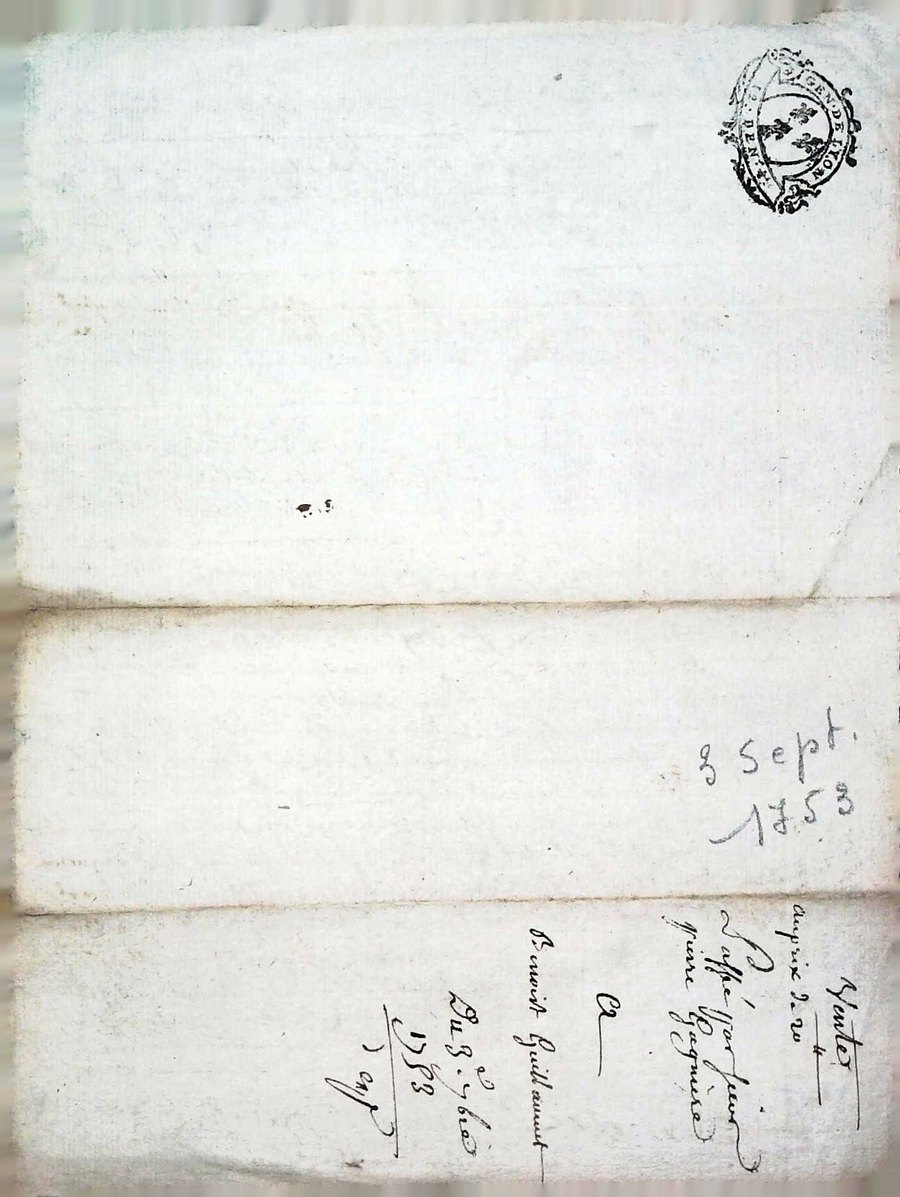 GEN·DE LYON
3 Sept.
1753
Vente
au prix de 20 ₶
Passé par sieur
Pierre Gagniere
A
Benoist Guillaume
Du 3.e 7bre
1753